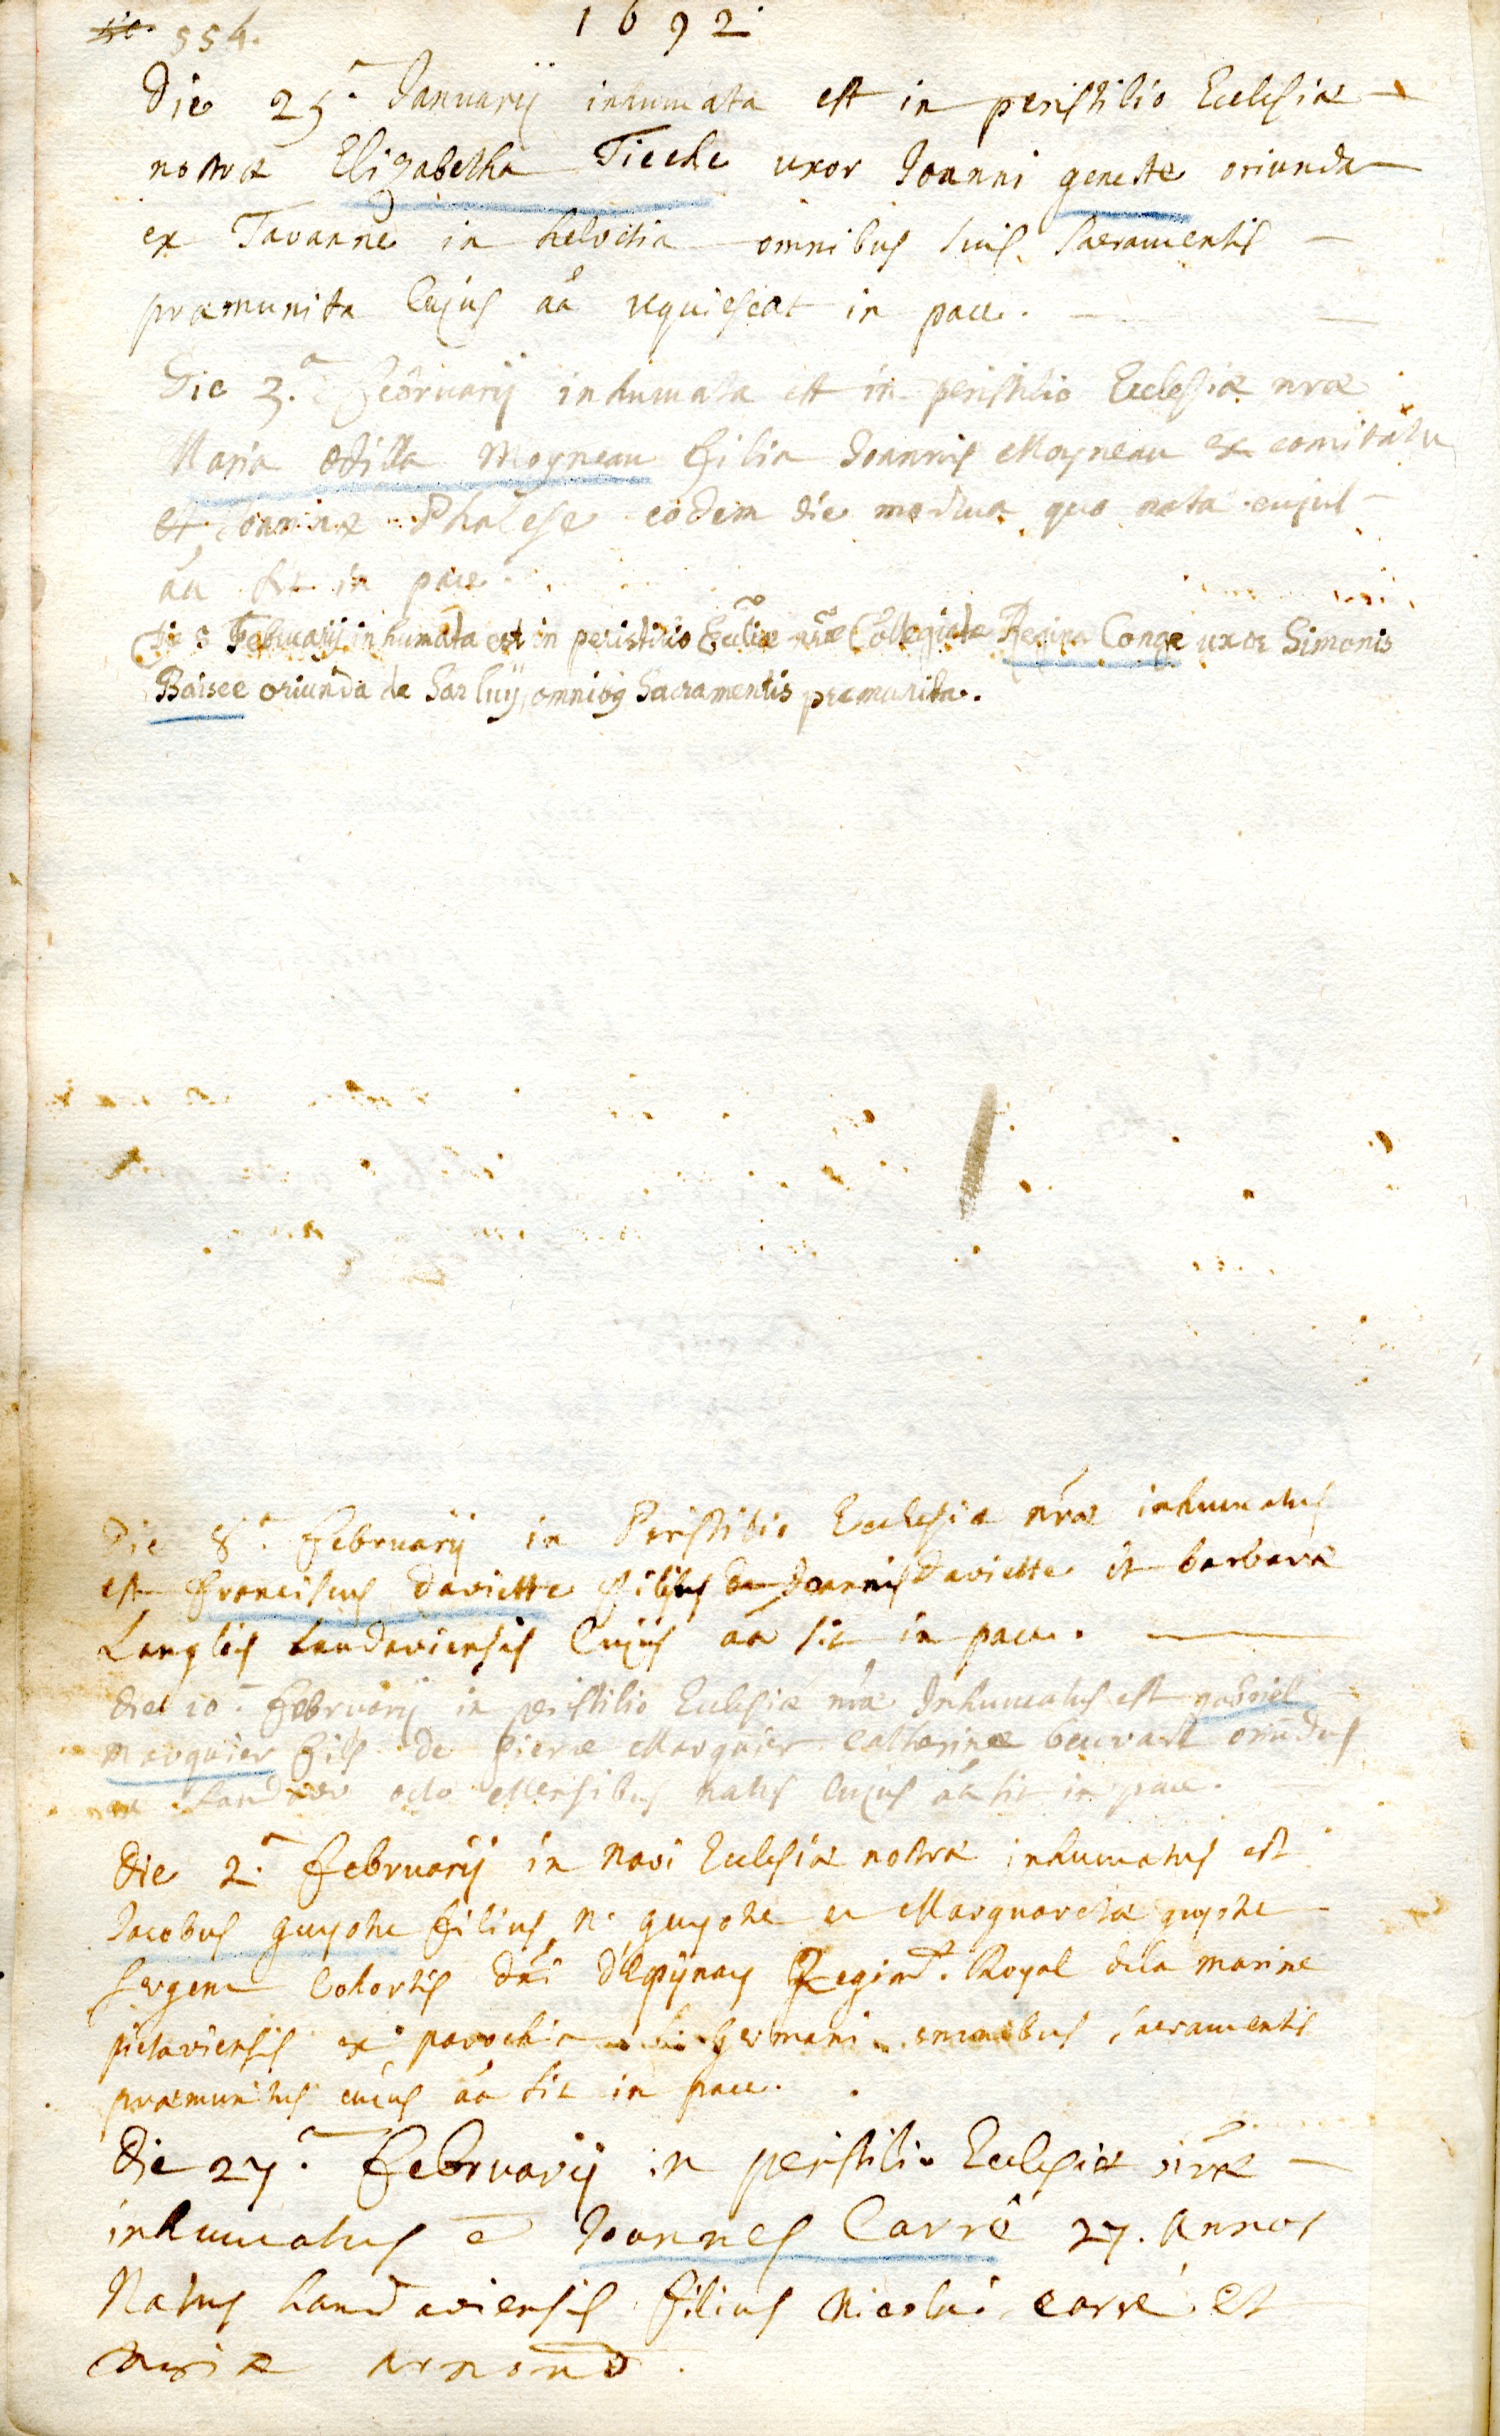 554.
1692
Die 25.a Januarÿ inhumata est in peristilio Ecclesiæ
nostræ Elizabetha Tieche uxor Joanni geneste oriunda
ex Tavanne in helvetia omnibus suis sacramentis
præmunita Cujus aa requiescat in pace.
Die 3.a Februarÿ inhumata est in peristilio Ecclesiæ nræ
Maria Odilla Moyneau filia Joannis Moyneau ex comitatu
et Joannæ Phalese eodem die mortua quo nata cujus
aa sit in pace.
Die 8 Februarij inhumata est in peristilio Eccliæ nræ Collegiatæ Regina Conge uxor Simonis
Baisee oriunda de Sarluÿ, omnibq Sacramentis præmunita.
Die 8.a februarÿ in Peristilio Ecclesiæ nræ inhumatus
est franciscus Daviette filius Joannis Daviette et barbaræ
Langlois Landaviensis Cujus aa sit in pace.
die 10.a februarÿ in peristilio Ecclesiæ nræ Inhumatus est gabriel
Marquier fils de pierre Marquier Catharinæ beuvart oriudus
ex Landav octo Mensibus natus Cujus aa sit in pace.
Die 2.a februarÿ in navi Ecclesiæ nostræ inhumatus est
Jacobus guyohe filius N. guyohe et Marguaretæ guyohe
sergent Cohortis Dni D'Epÿnay Regimt. Royal dela marine
pictaviensis ex parochia Germani omnibus sacramentis
præmunitus cujus aa sit in pace.
Die 27.a februarÿ in peristilio Ecclesiæ nræ
inhumatus e Joannes Carré 27. Annos
Natus Landaviensis filius Nicolai carré et
Mariæ Armond.